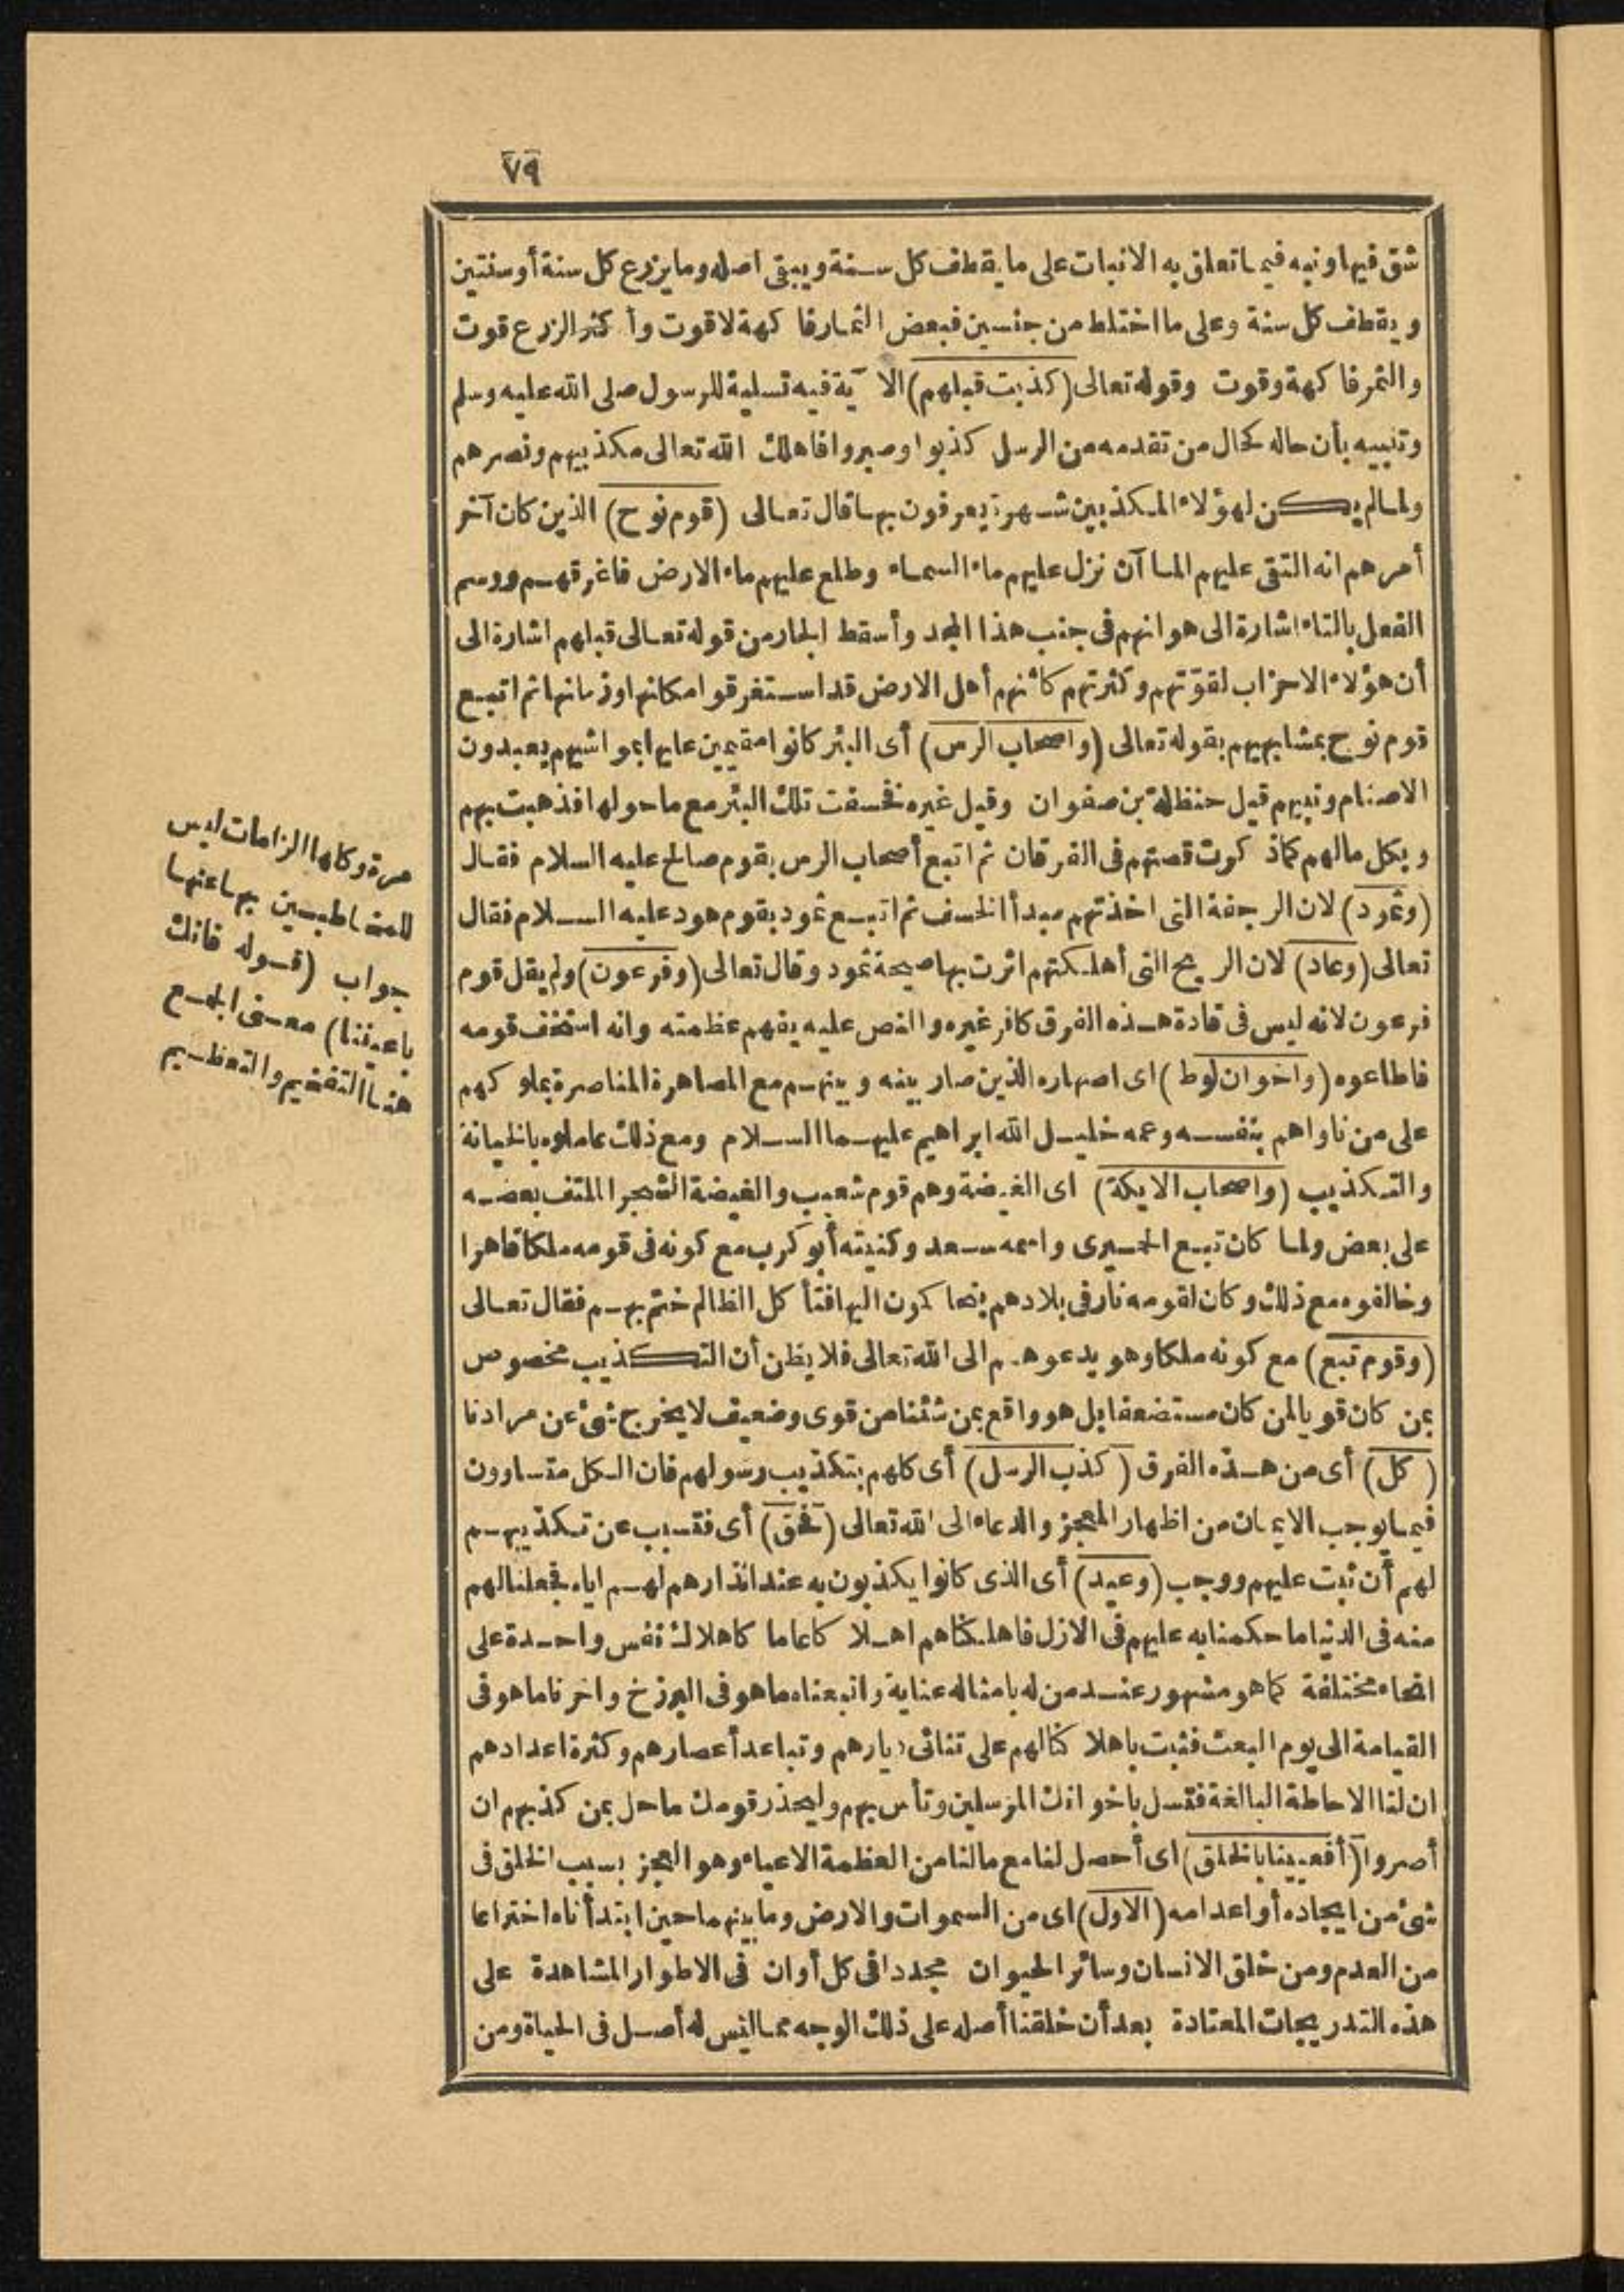 ٧٩
شق فيها ونبه فيما تعلق به الانبات على ما يقطف كل سنة ويبقى اصله وما يزرع كل سنة أو سنتين
ويقطف كل سنة وعلى ما اختلط من جنسين فبعض الثمار فاكهة لا قوت وأكثر الزرع قوت
والتمر فاكهة وقوت وقوله تعالى (كذبت قبلهم) الآية فيه تسلية للرسول صلى الله عليه وسلم
وتنبيه بأن حاله كحال من تقدمه من الرسل كذبوا وصبروا فاهلك الله تعالى مكذبيهم ونصرهم
ولما لم يكن لهؤلاء المكذبين شهرة يعرفون بها قال تعالى (قوم نوح) الذين كان آخر
أمرهم انه التقى عليهم الماآن نزل عليهم ماء السماء وطلع عليهم ماء الارض فاغرقهم ووسم
الفعل بالتاء اشارة الى هوانهم فى جنب هذا المجد وأسقط الجار من قوله تعالى قبلهم اشارة الى
أن هؤلاء الاحزاب لقوّتهم وكثرتهم كأنهم أهل الارض قد استغرقوا مكانها وزمانها ثم اتبع
قوم نوح بمشابهيهم بقوله تعالى (واصحاب الرس) أى البئر كانوا مقيمين عليها بمواشيهم يعبدون
الاصنام ونبيهم قيل حنظلة بن صفوان وقيل غيره نخسفت تلك البئر مع ما حولها فذهبت بهم
وبكل مالهم كما ذكرت قصتهم فى الفرقان ثم اتبع أصحاب الرس بقوم صالح عليه السلام فقال
(وثمود) لان الرجفة التى اخذتهم مبدأ الخسف ثم اتبع ثمود بقوم هود عليه السلام فقال
تعالى (وعاد) لان الريح التى أهلكتهم اثرت بها صيحة ثمود وقال تعالى (وفرعون) ولم يقل قوم
فرعون لانه ليس فى قادة هذه الفرق كافر غيره والنص عليه يفهم عظمته وانه استخف قومه
فاطاعوه (واخوان لوط) اى اصهاره الذين صار بينه وبينهم مع المصاهرة المناصرة بملوكهم
على من ناواهم بنفسه وعمه خليل الله ابراهيم عليهما السلام ومع ذلك عاملوه بالخيانة
والتكذيب (واصحاب الايكة) اى الغيضة وهم قوم شعيب والغيضة الشجر الملتف بعضه
على بعض ولما كان تبع الحميرى واسمه سعد وكنيته أبو كرب مع كونه فى قومه ملكا قاهرا
وخالفوه مع ذلك وكان لقومه نار فى بلادهم يتحاكمون اليها فتأكل الظالم ختم بهم فقال تعالى
(وقوم تبع) مع كونه ملكا وهو يدعوهم الى الله تعالى فلا يظن أن التكذيب مخصوص
بمن كان قويا لمن كان مستضعفا بل هو واقع بمن شئنا من قوى وضعيف لا يخرج شئ عن مرادنا
(كل) أى من هذه الفرق (كذب الرسل) أى كلهم بتكذيب رسولهم فان الكل متساوون
فيما يوجب الايمان من اظهار المعجز والدعاء الى الله تعالى (فحق) أى فتسبب عن تكذيبهم
لهم أن ثبت عليهم ووجب (وعيد) أى الذى كانوا يكذبون به عند انذارهم لهم اياه فجعلنا لهم
منه فى الدنيا ما حكمنا به عليهم فى الازل فاهلكناهم اهلاكا عاما كاهلاك نفس واحدة على
انحاء مختلفة كما هو مشهور عند من له بامثاله عناية واتبعناه ما هو فى البرزخ واخرنا ما هو فى
القيامة الى يوم البعث فثبت باهلاكنا لهم على تنائى ديارهم وتباعد أعصارهم وكثرة اعدادهم
ان لنا الاحاطة البالغة فتسل باخوانك المرسلين وتأس بهم وليحذر قومك ما حل بمن كذبهم ان
أصروا (أفعيينا بالخلق) اى أحصل لنا مع مالنا من العظمة الاعياء وهو العجز بسبب الخلق فى
شئ من ايجاده أو اعدامه (الاول) اى من السموات والارض وما بينهما حين ابتدأناه اختراعا
من العدم ومن خلق الانسان وسائر الحيوان مجددا فى كل أوان فى الاطوار المشاهدة على
هذه التدريجات المعتادة بعد أن خلقنا أصله على ذلك الوجه مما ليس له أصل فى الحياة ومن
مرة وكلها الزامات ليس
للمخاطبين بها عنها
جواب (قوله فانك
باعيننا) معنى الجمع
هنا التفخيم والتعظيم